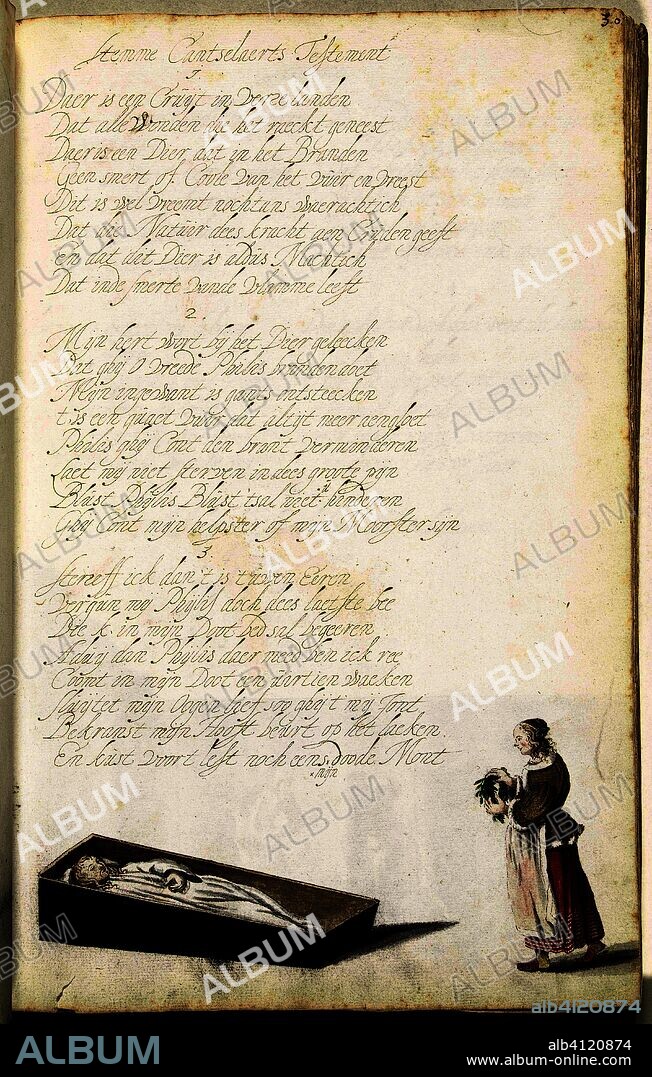 30
stemme Cantselaerts Testement
1
Daer is een Cruijt in verre landen
Dat alle Wonden die het raeckt geneest
Daer is een Dier dat in het Branden
Geen smert of Coole van het vuer en vreest
Dit is wel vreemt nochtans waerachtich
Dat dees kracht aen geeft
en dat dat Dier is aldus Machtich
Dat inde smerte vande vlamme leeft
2
Mijn hert wort bij het Dier geleecken
Dat ghij O vreede Philis branden doet
Mijn ingewant is gants ontsteecken
t is een vuer dat altijt meer aengloet
Philis ghij Cont den brant verminderen
Laet mij niet sterven in dees groote pijn
Blust Phylis Blust tsal niet hinderen
Ghij Cont mijn helpster of mijn Moorster sijn
3
stereff ick dan t is t uwen Eeren
vergun mij Phylis doch dees laetste bee
Die k in mijn Doot bed sal begeeren
dan Phylis daer mee ben ick ree
Coomt in mijn Doot een uurtien waeken
sluijtet mijn Oogen lief soo ghij't mij Jont
Bekranst mijn Hooft beurt op het laeken
En kust voort lest noch eens doode Mont
mijn
ALBUM
alb4120874
ALBUM
alb4120874
www.album-online.com